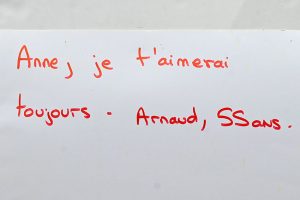 Anne, je t'aimerai
toujours - Arnaud, 55ans.